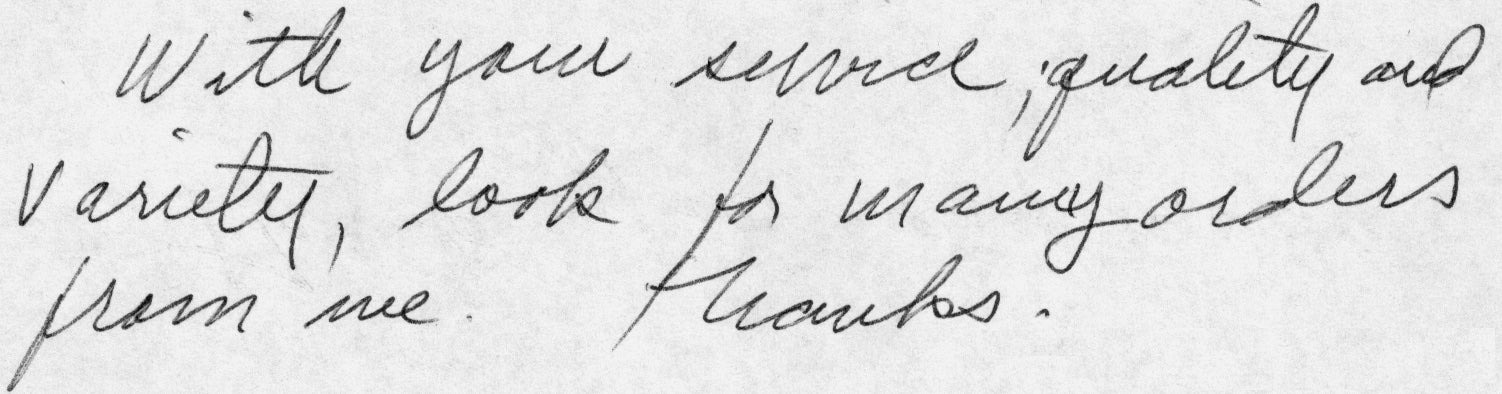 With your service, quality and
variety, look for many orders
from me. Thanks.